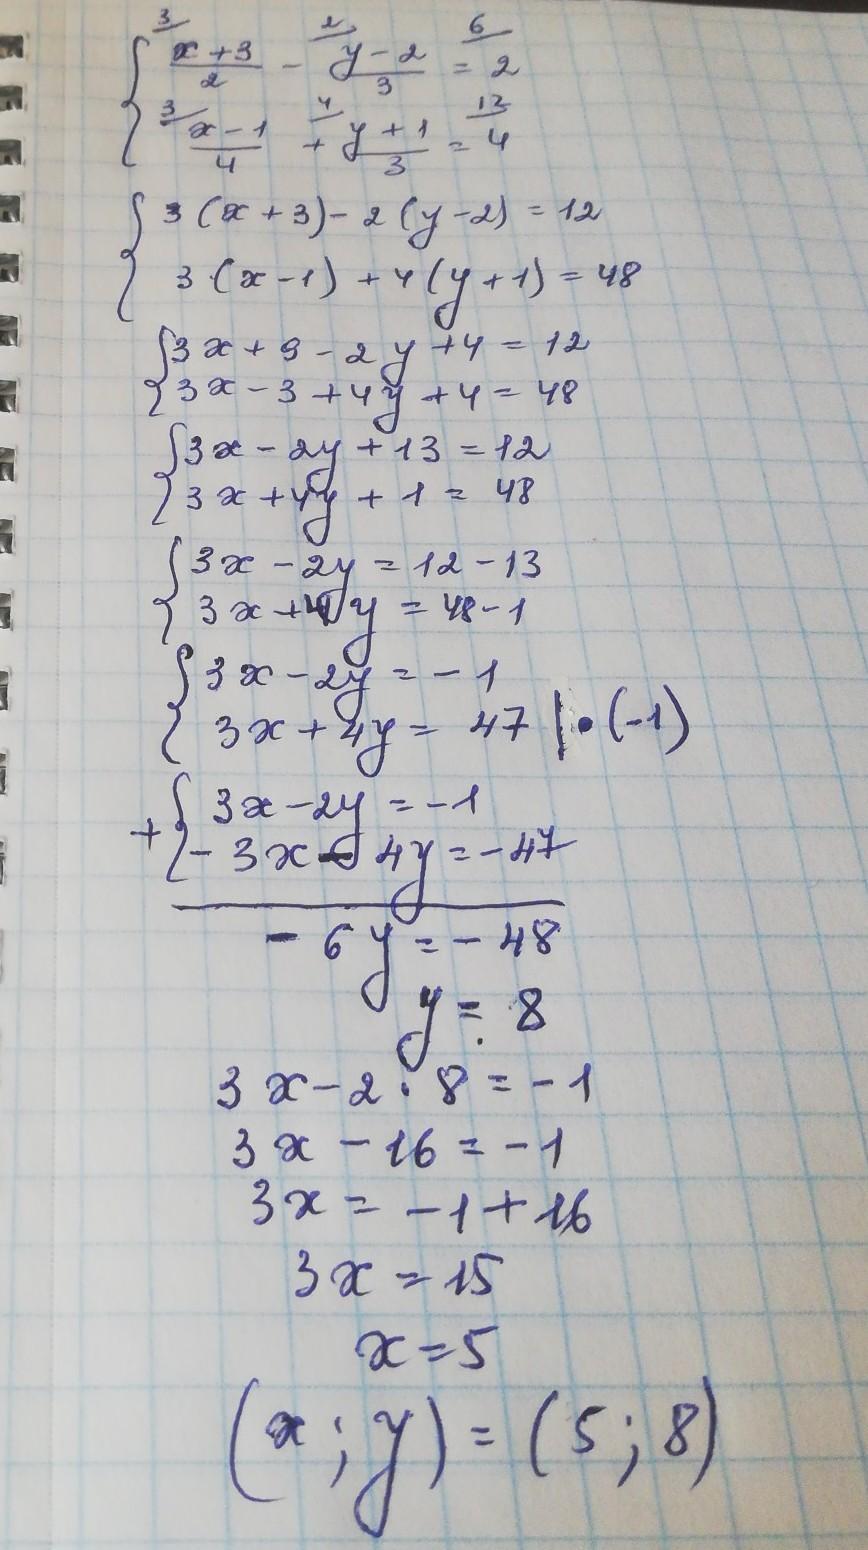 3 2 6
{ x+3/2 - y-2/3 = 2
3 4 12
x-1/4 + y+1/3 = 4
{ 3(x+3)-2(y-2)=12
3(x-1)+4(y+1)=48
{ 3x+9-2y+4=12
3x-3+4y+4=48
{ 3x-2y+13=12
3x+4y+1=48
{ 3x-2y=12-13
3x+4y=48-1
{ 3x-2y=-1
3x+4y=47 |•(-1)
+{ 3x-2y=-1
-3x-4y=-47
-6y=-48
y=8
3x-2·8=-1
3x-16=-1
3x=-1+16
3x=15
x=5
(x;y)=(5;8)